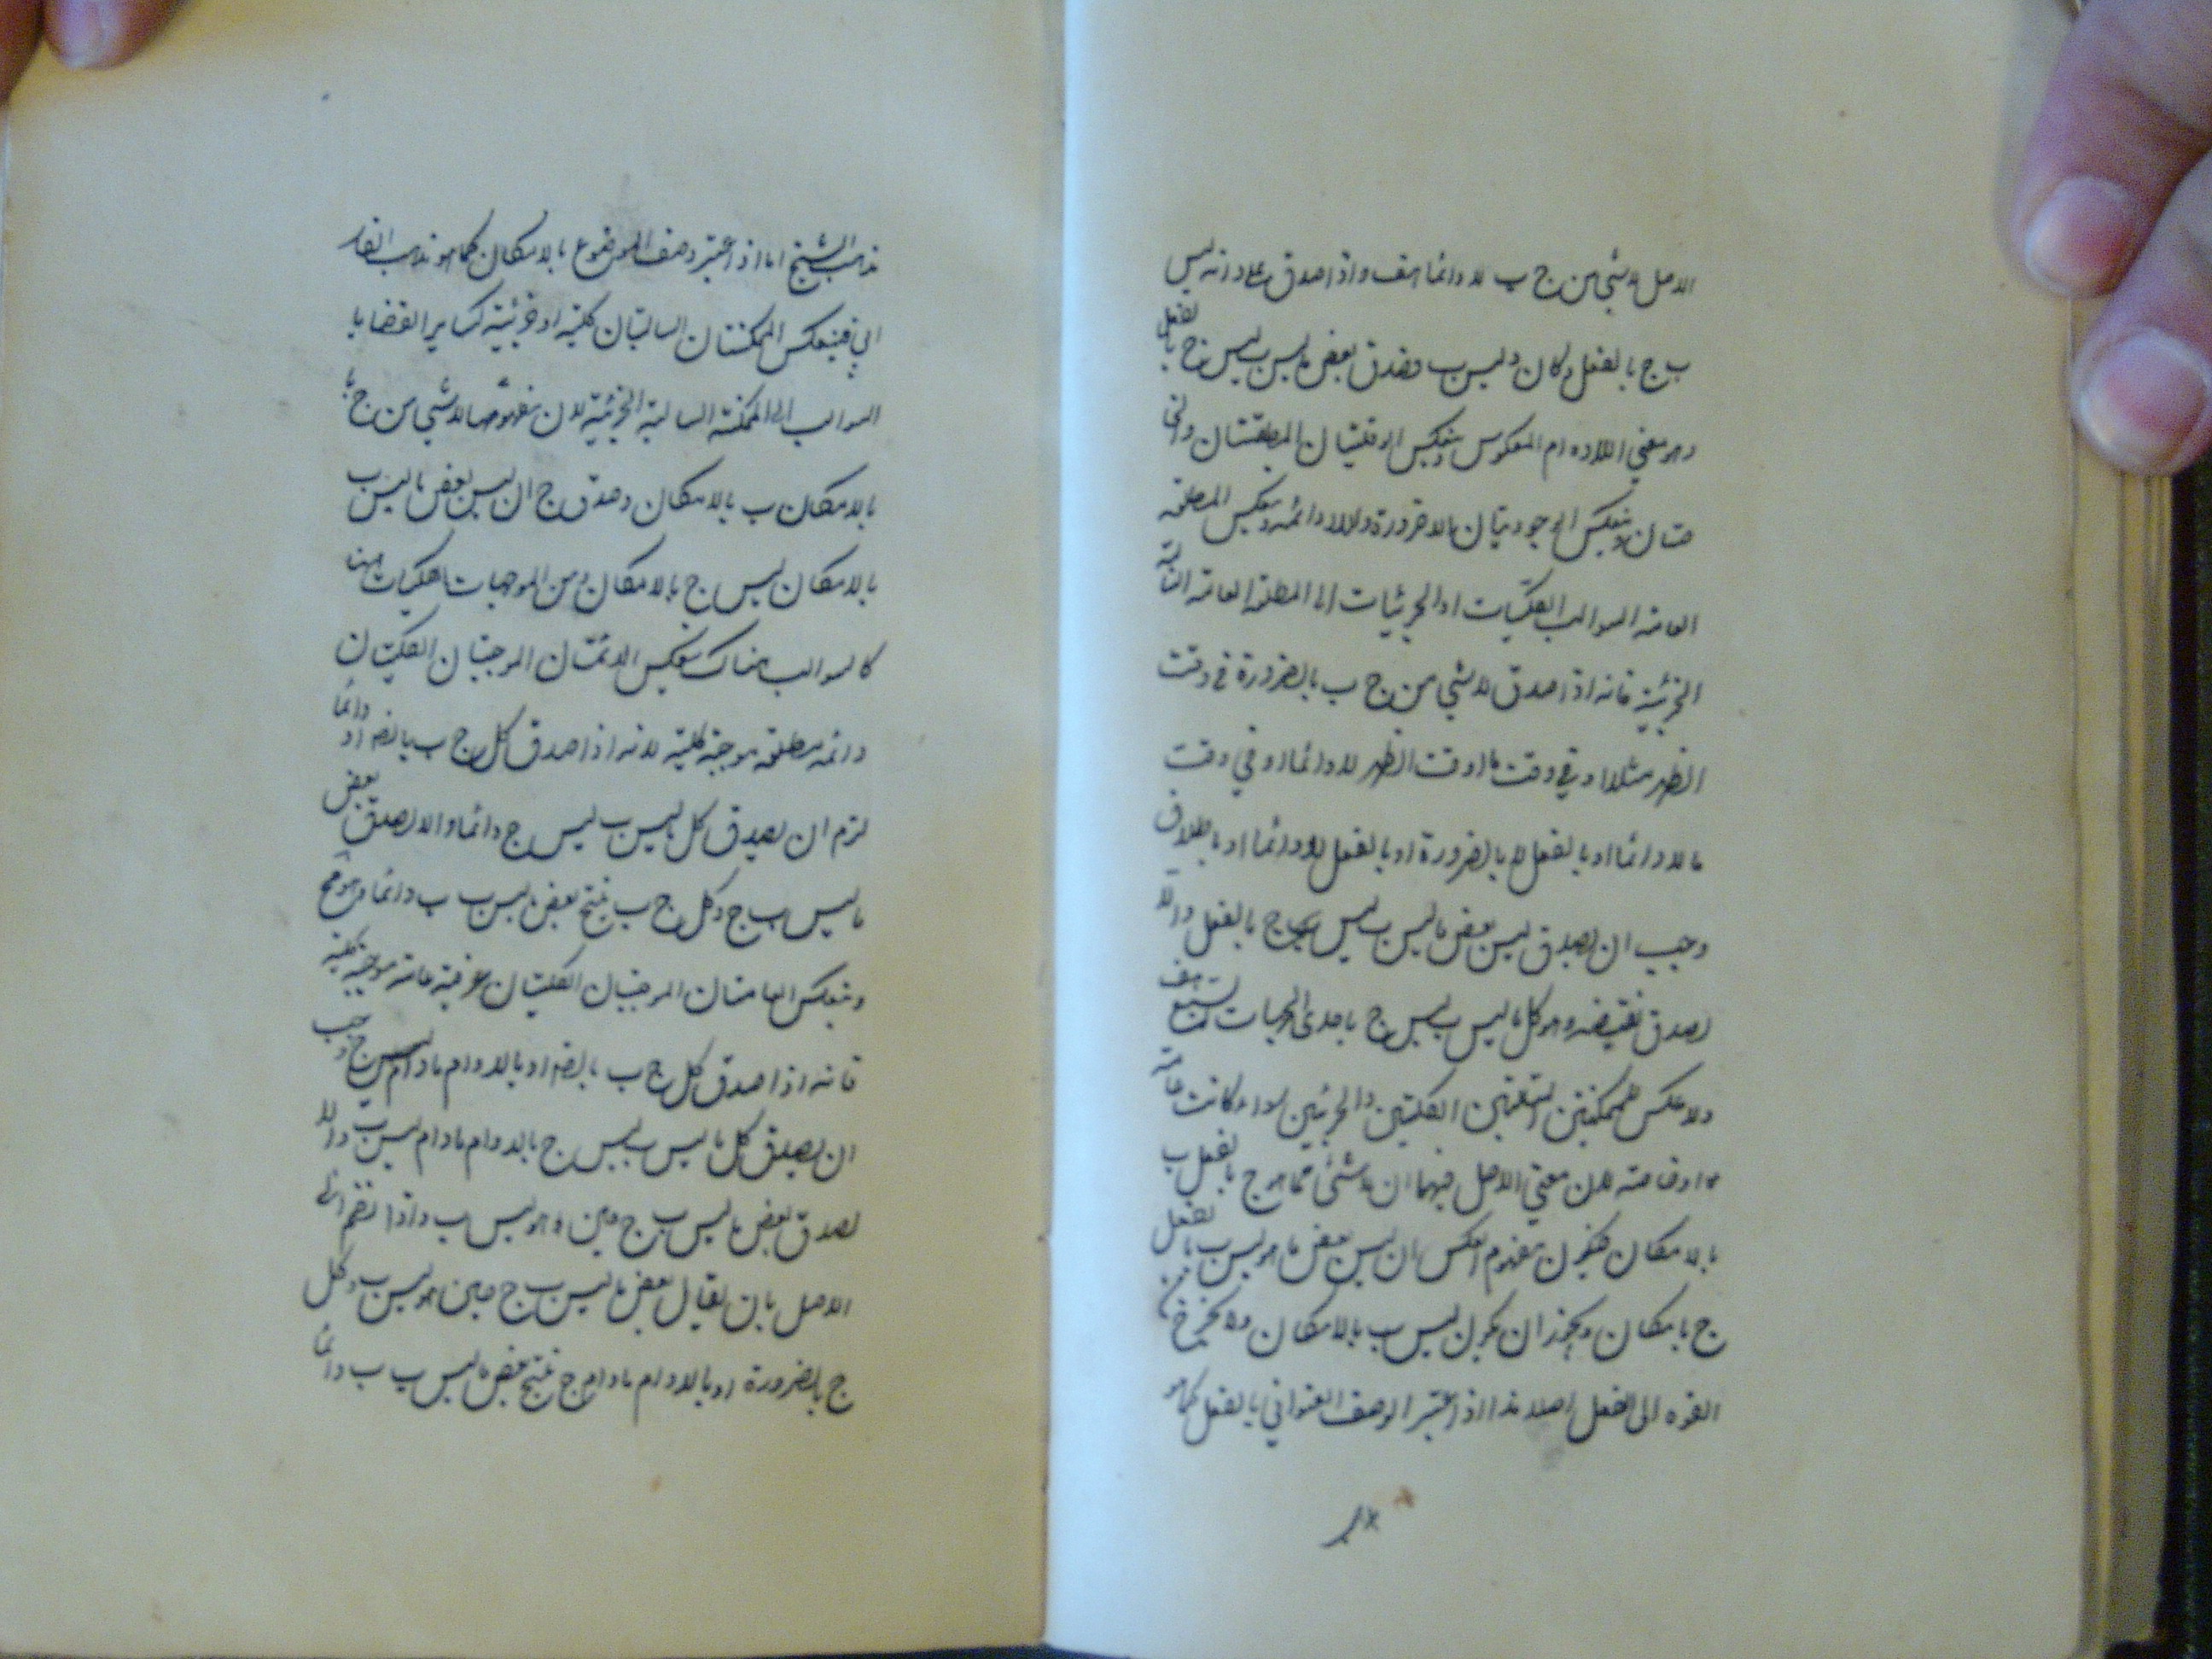 الاصل لا شي من ج ب لا دائما هف واذا صدق على د انه ليس
ب ج بالفعل وكان د ليس ب فصدق بعض ما ليس ب ليس ج بالفعل
وهو معنى اللادوام المعكوس وينعكس الوقتيتان المطلقتان والو
قتيتان وينعكس الوجوديتان اللاضرورة واللادائمة وينعكس المطلقة
العامة السوالب الكليات او الجزئيات الى المطلقة العامة السالبة
الجزئية فانه اذا صدق لا شي من ج ب بالضرورة في وقت
الظهر مثلا او في وقت ما او وقت الظهر لا دائما او في وقت
ما لا دائما او بالفعل لا بالضرورة او بالفعل لا دائما او باطلاق
وجب ان يصدق ليس بعض ما ليس ب ليس ج بالفعل والا
لصدق نقيضه وهو كل ما ليس ب ليس ج باحدى الجهات هف
ولا عكس للممكنتين السالبتين الكليتين والجزئيتين سواء كانت عامة
او خاصة لان معنى الاصل فيهما ان لا شئ مما هو ج بالفعل ب
بالامكان فيكون مفهوم العكس ان ليس بعض ما هو ليس ب بالفعل
ج بامكان ويجوز ان يكون ليس ب بالامكان ولا يخرج من
القوه الى الفعل اصلا هذا اذا اعتبر الوصف العنواني بالفعل كما هو
مذهب الشيخ اما اذا اعتبر وصف الموضوع بالامكان كما هو مذهب الفار
ابي فينعكس الممكنتان السالبتان كلية او جزئية كساير القضايا
السوالب الى الممكنة السالبة الجزئية لان مفهومها لا شي من ج
بالامكان ب بالامكان وصدق ج ان ليس بعض ما ليس ب
بالامكان ليس ج بالامكان ومن الموجبات الكليات ههنا
كالسوالب هناك ينعكس الدائمتان الموجبتان الكليتان
دائمه مطلقه موجبة كلية لانه اذا صدق كل ج ب بالضر او دائما
لزم ان يصدق كل ما ليس ب ليس ج دائما والا لصدق بعض
ما ليس ب ج وكل ج ب ينتج بعض ما ليس ب ب دائما وهو مح
وينعكس العامتان الموجبتان الكليتان عرفية عامة موجبة كلية
فانه اذا صدق كل ج ب بالضر او بالدوام ما دام ج وجب
ان يصدق كل ما ليس ب ليس ج بالدوام ما دام ليس ب والا
لصدق بعض ما ليس ب ج حين هو ليس ب واذا انضم الى
الاصل بان يقال بعض ما ليس ب ج حين هو ليس ب وكل
ج بالضرورة او بالدوام ما دام ج ينتج بعض ما ليس ب ب دائما